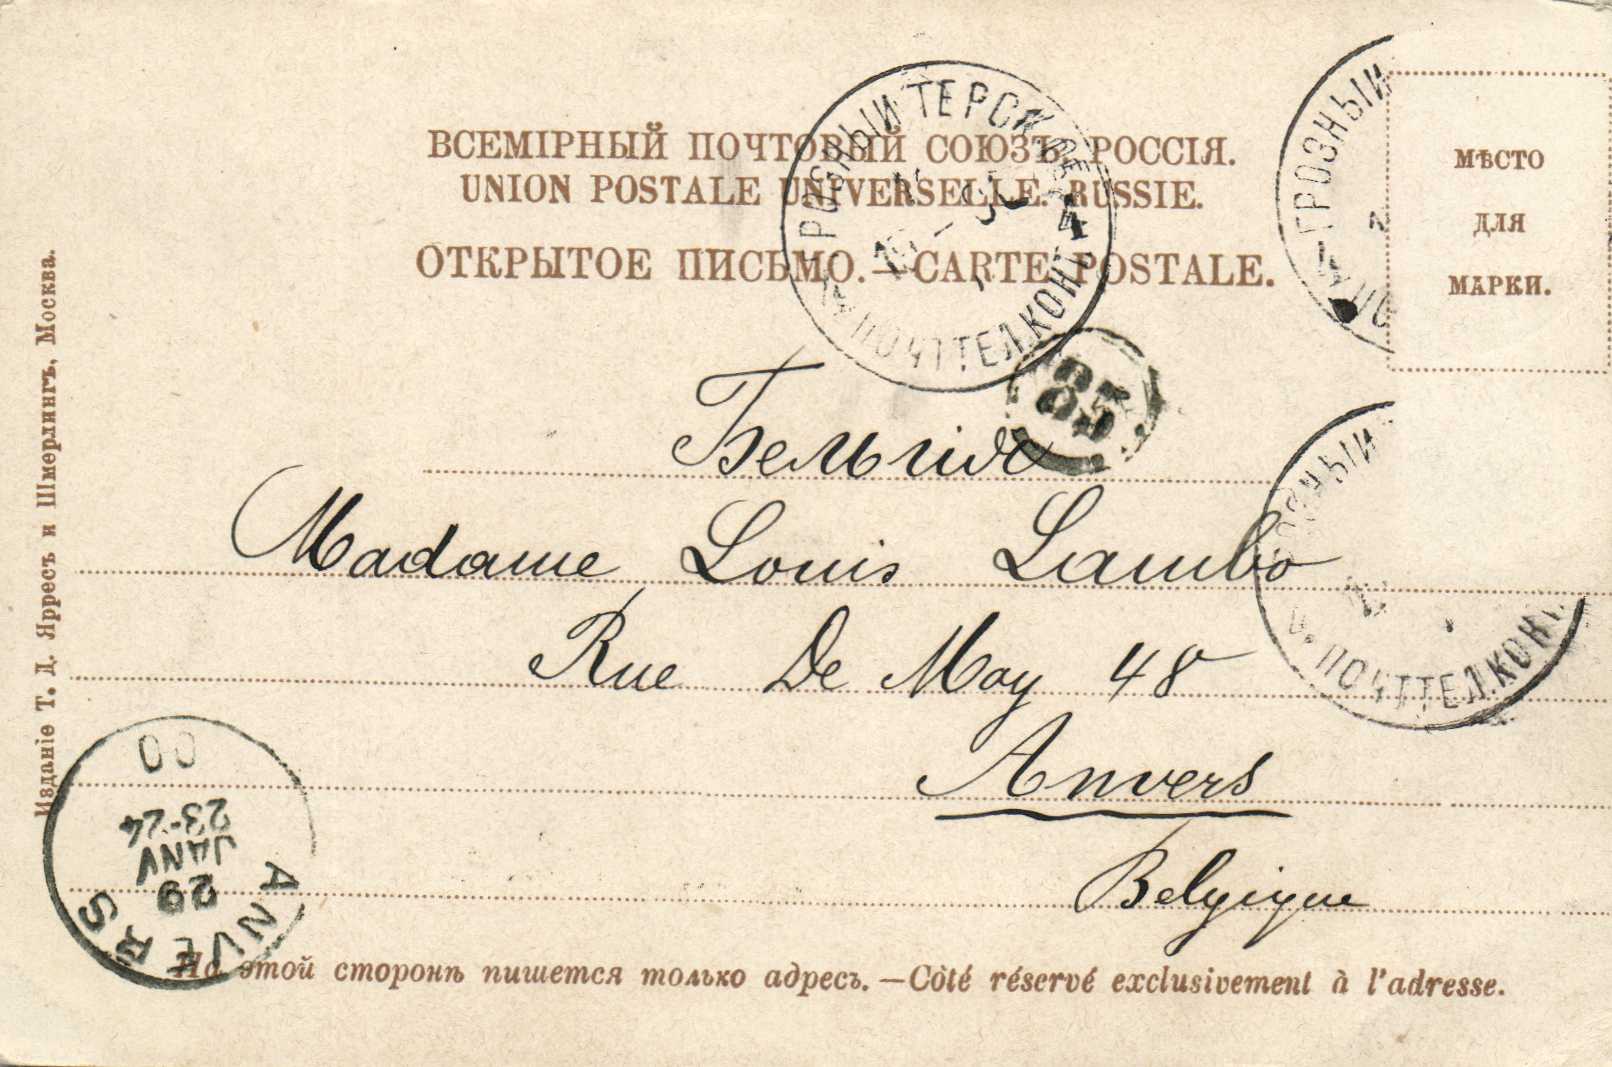 ВСЕМІРНЫЙ ПОЧТОВЫЙ СОЮЗЪ. РОССІЯ.
UNION POSTALE UNIVERSELLE. RUSSIE.
ОТКРЫТОЕ ПИСЬМО.—CARTE POSTALE.
МѢСТО
ДЛЯ
МАРКИ.
ГРОЗНЫЙ ТЕРСК. ОБЛ.
ПОЧТ ТЕЛ. КОНТ
ГРОЗНЫЙ
ПОЧТ ТЕЛ. КОНТ
Бельгія
Madame Louis Lambo
Rue De Moy 48
Anvers
Belgique
ANVERS
29
JANV
23-24
00
На этой сторонѣ пишется только адресъ.—Côté réservé exclusivement à l'adresse.
Изданіе Т. Д. Ярресъ и Шмерлингъ, Москва.